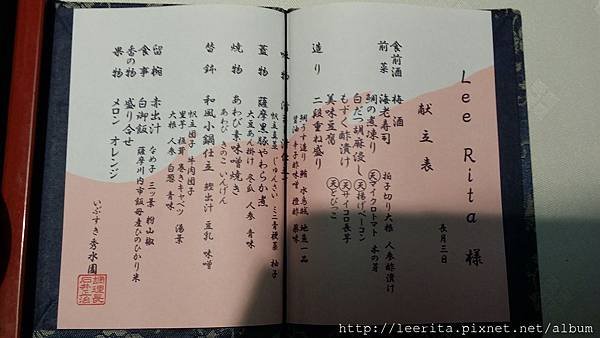 Lee Rita 様
献立表
長月三日
食前酒 梅酒
前菜 海老寿司 拍子切り大根 人参酢漬け
鯛の煮凍り 天マイクロトマト 木の芽
白だつ胡麻浸し 天揚げベーコン
もずく酢漬け 天サイコロ長芋
美味豆腐 天とびっこ
造り 二段重ね盛り
鯛うす造り 鮪 水烏賊 地魚一品
蓋物 薩摩黒豚やわらか煮
帆立真薯 じゅんさい 三ツ葉 梗菜 柚子
大豆あん掛け 冬瓜 人参 青味
焼物 あわび青味噌焼き
あわび きのこ いんげん
替鉢 和風小鍋仕立 鰹出汁 豆乳 味噌
帆立団子 牛肉団子
里芋 椎茸 巻きキャベツ 湯葉
大根 人参 白葱 青味
留椀 赤出汁 なめ子 三ッ葉 粉山椒
食事 白御飯 薩摩川内市飯母産ひのひかり米
香の物 盛り合せ
果物 メロン オレンジ
いぶすき秀水園
調理長
http://leerita.pixnet.net/album